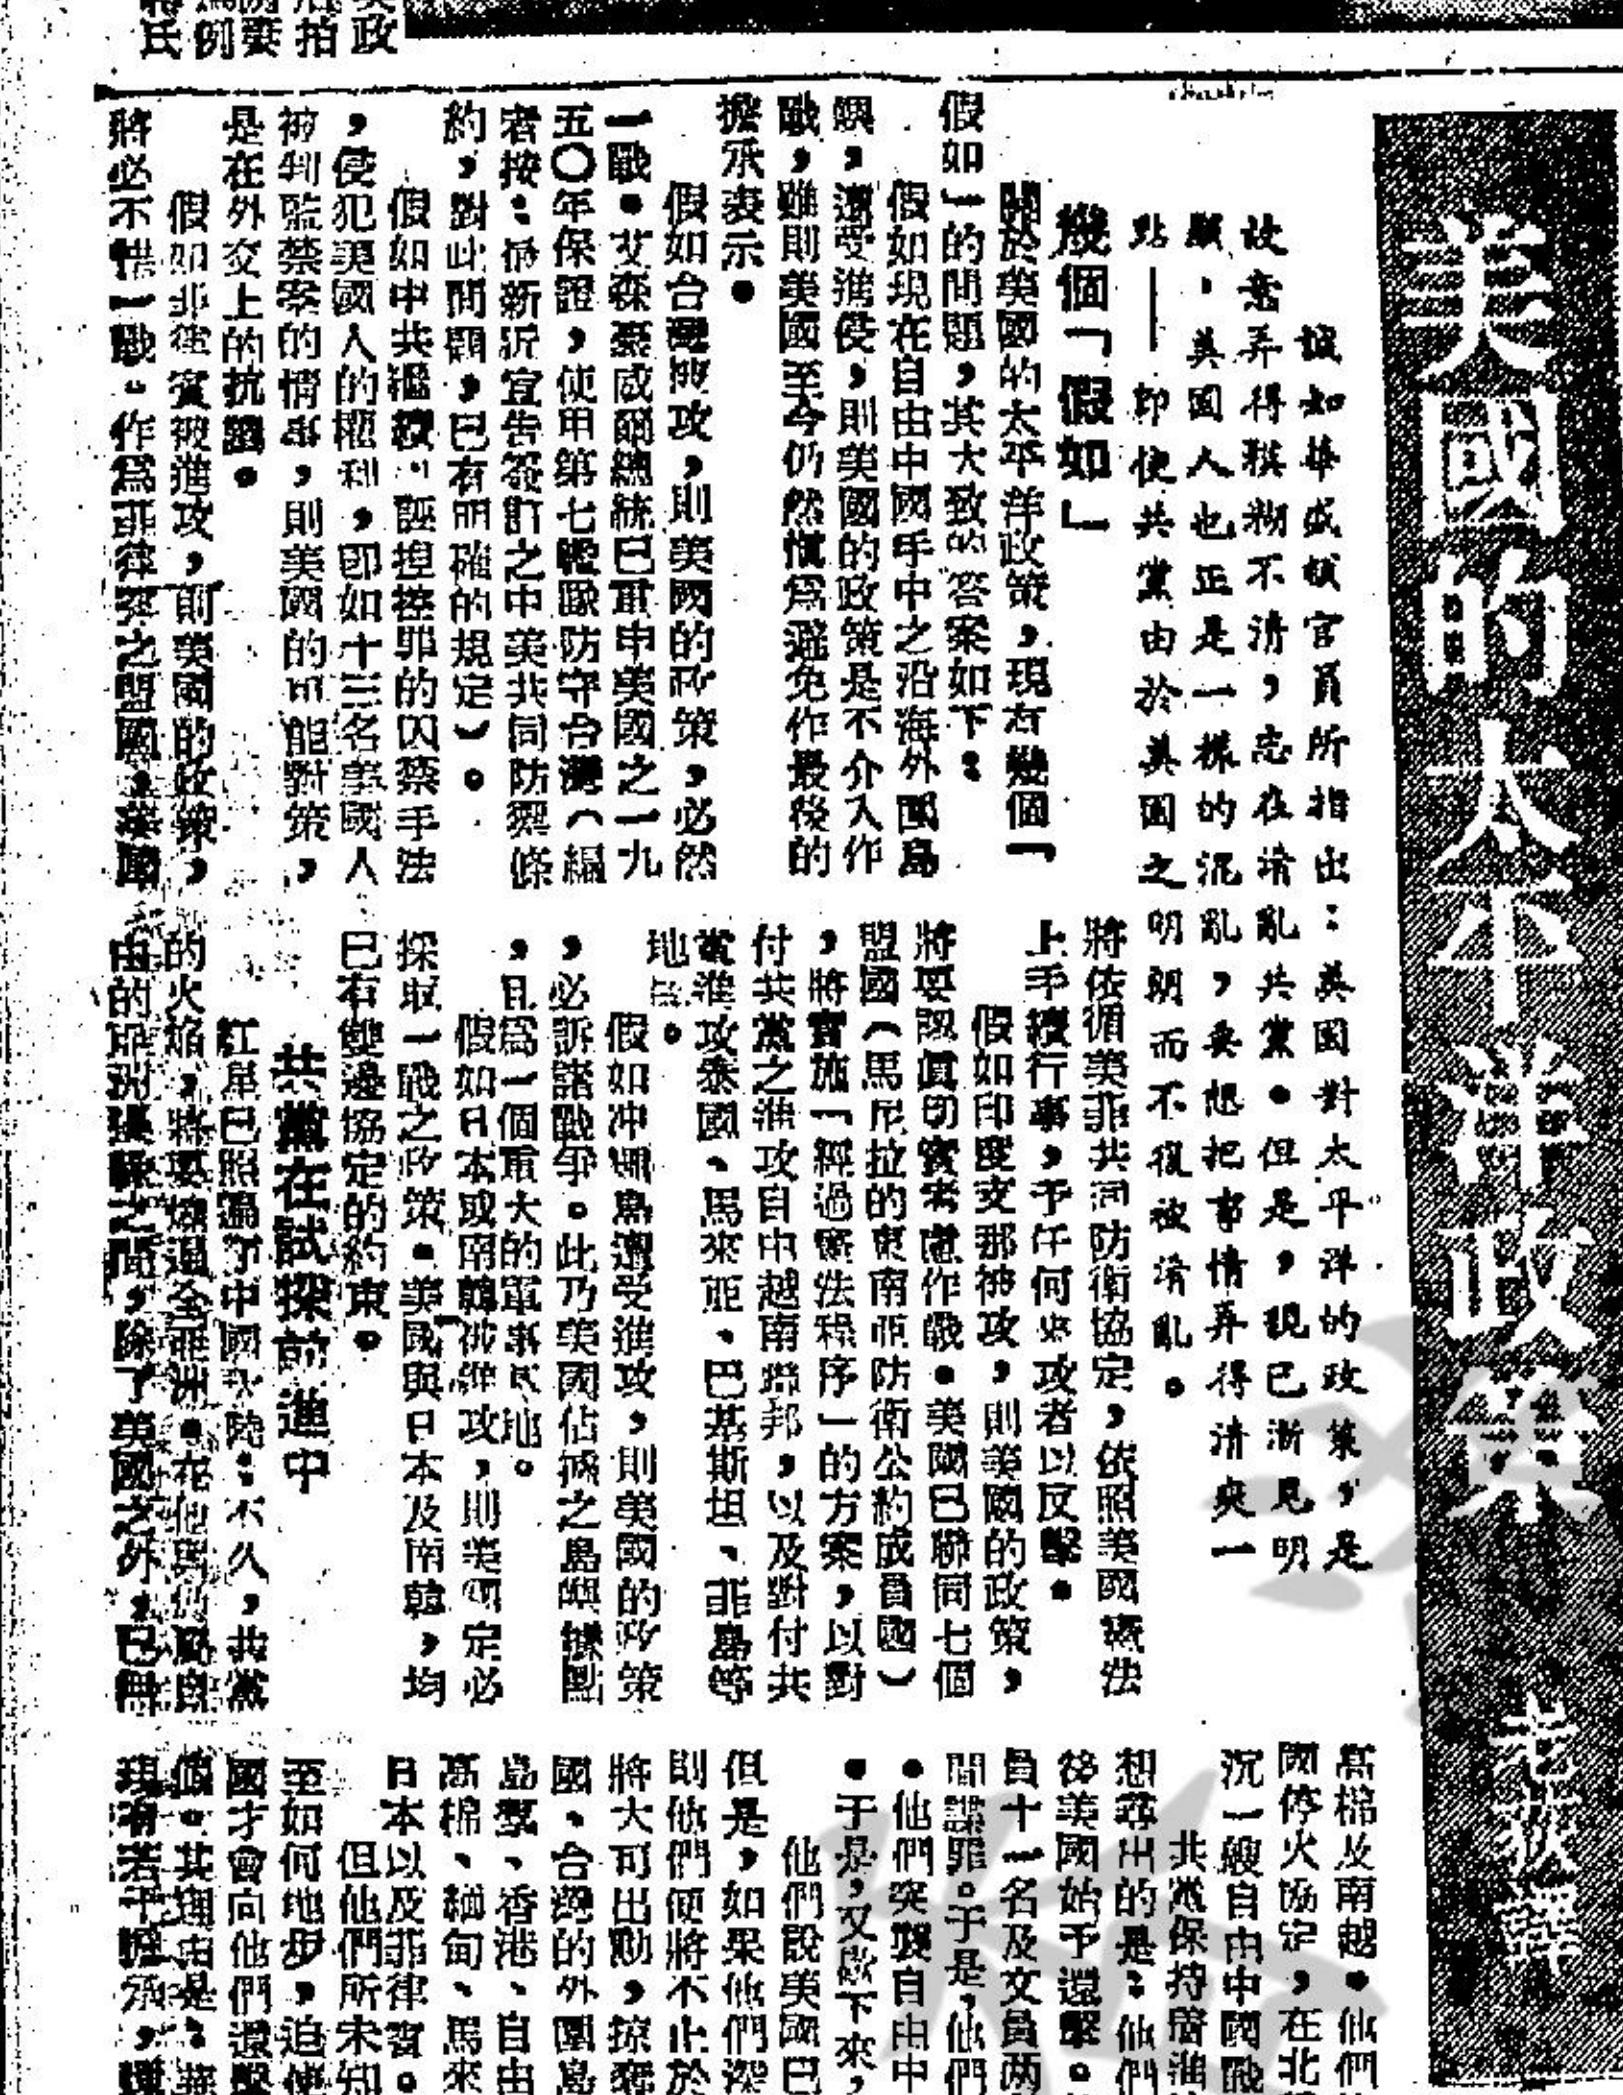 美國的太平洋政策
誠如華盛頓官員所指出：美國對太平洋的政策，是
故意弄得糢糊不清，志在淆亂共黨。但是，現已漸見明
顯，美國人也正是一樣的混亂，要想把事情弄得清爽一
點——即使共黨由於美國之明朗而不復被淆亂。
幾個「假如」
關於美國的太平洋政策，現有幾個「
假如」的問題，其大致的答案如下：
假如現在自由中國手中之沿海外圍島
嶼，遭受進侵，則美國的政策是不介入作
戰，雖則美國至今仍然慎為避免作最後的
擔承表示。
假如台灣被攻，則美國的政策，必然
一戰。艾森豪威爾總統已重申美國之一九
五〇年保證，使用第七艦隊防守台灣（編
者按：最新近宣告簽訂之中美共同防禦條
約，對此問題，已有明確的規定）。
假如中共繼續，誣揑控罪的囚禁手法
，侵犯美國人的權利，即如十三名美國人
被判監禁案的情事，則美國的可能對策，
是在外交上的抗議。
假如菲律賓被進攻，則美國的政策，
將必不惜一戰。作為菲律賓之盟國，美國
將依循美菲共同防衛協定，依照美國憲法
上手續行事，予任何來攻者以反擊。
假如印度支那被攻，則美國的政策，
將要認真切實考慮作戰。美國已聯同七個
盟國（馬尼拉的東南亞防衛公約成員國）
，將實施「經過憲法程序」的方案，以對
付共黨之進攻自中越南聯邦，以及對付共
黨進攻泰國、馬來亞、巴基斯坦、菲島等
地區。
假如冲繩島遭受進攻，則美國的政策
，必訴諸戰爭。此乃美國佔領之島嶼據點
，且為一個重大的軍事基地。
假如日本或南韓被進攻，則美國定必
採取一戰之政策。美國與日本及南韓，均
已有雙邊協定的約束。
共黨在試探前進中
紅星已照遍了中國大陸：不久，共黨
的火焰，將要燎遍全亞洲。在他與
由的 之間，除了美國之外，已無
高棉及南越。他們
國停火協定，在北
沉一艘自由中國戰
共黨保持着進
想尋出的是：他們
後美國始予還擊。
員十一名及文員兩
間諜罪。于是，他們
。他們突襲自由中
。于是，又啟下來，
他們說美國已
但是，如果他們深
則他們便將不止於
將大可出動，掠奪
國、台灣的外圍島
島羣、香港、自由
高棉、緬甸、馬來
日本以及菲律賓。
但他們所未知
至如何地步，迫使
國才會向他們還擊
個。其理由是：華
現有若干擔承，